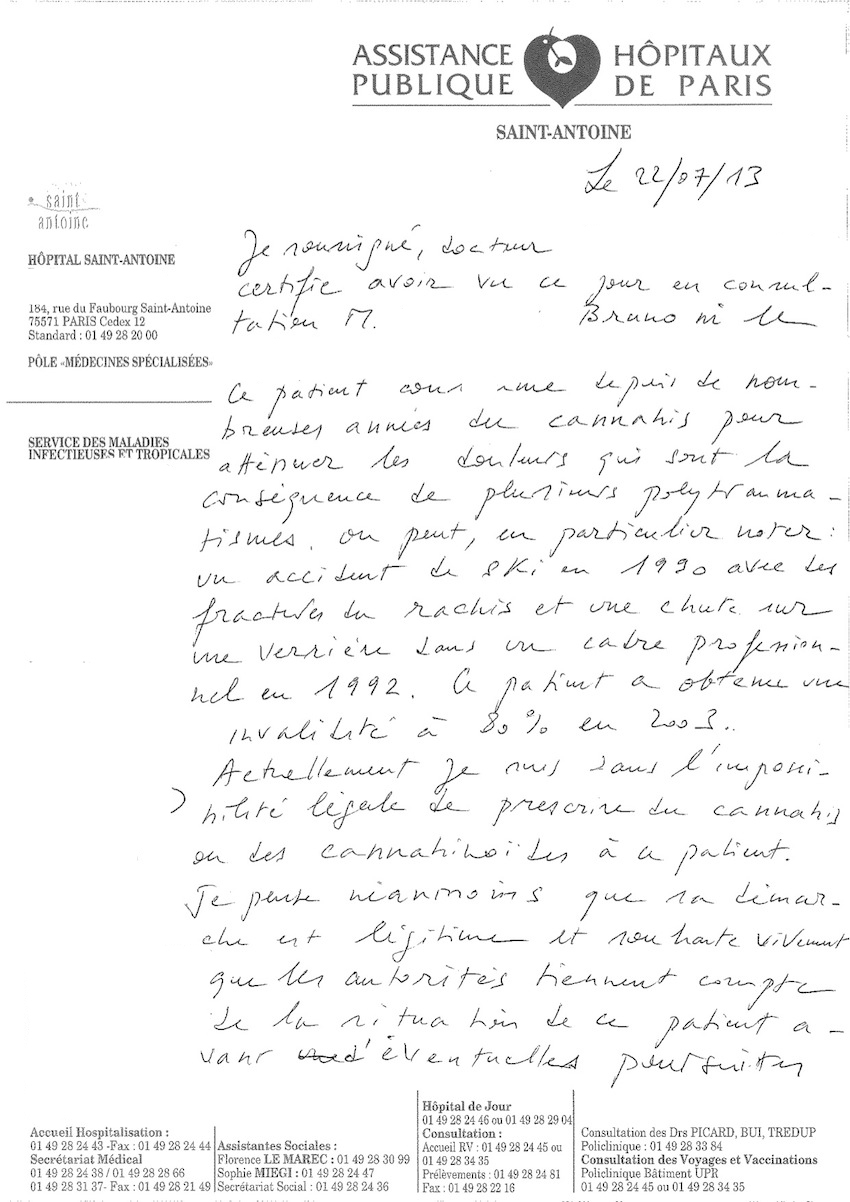 ASSISTANCE PUBLIQUE HÔPITAUX DE PARIS
SAINT-ANTOINE
Le 22/07/13
saint
antoine
HÔPITAL SAINT-ANTOINE
184, rue du Faubourg Saint-Antoine
75571 PARIS Cedex 12
Standard : 01 49 28 20 00
PÔLE «MÉDECINES SPÉCIALISÉES»
SERVICE DES MALADIES
INFECTIEUSES ET TROPICALES
Je soussigné, docteur
certifie avoir vu ce jour en consul-
tation M. Bruno né le
Ce patient consomme depuis de nom-
breuses années du cannabis pour
atténuer les douleurs qui sont la
conséquence de plusieurs polytrauma-
tismes. On peut, en particulier noter :
un accident de ski en 1990 avec des
fractures du rachis et une chute sur
une verrière dans un cadre profession-
nel en 1992. Ce patient a obtenu une
invalidité à 80% en 2003.
Actuellement je suis dans l'impossi-
bilité légale de prescrire du cannabis
ou des cannabinoïdes à ce patient.
Je pense néanmoins que sa démar-
che est légitime et souhaite vivement
que les autorités tiennent compte
de la situation de ce patient a-
vant d'éventuelles poursuites
Accueil Hospitalisation :
01 49 28 24 43 -Fax : 01 49 28 24 44
Secrétariat Médical
01 49 28 24 38 / 01 49 28 28 66
01 49 28 31 37- Fax : 01 49 28 21 49
Assistantes Sociales :
Florence LE MAREC : 01 49 28 30 99
Sophie MIEGI : 01 49 28 24 47
Secrétariat Social : 01 49 28 24 36
Hôpital de Jour
01 49 28 24 46 ou 01 49 28 29 04
Consultation :
Accueil RV : 01 49 28 24 45 ou
01 49 28 34 35
Prélèvements : 01 49 28 24 81
Fax : 01 49 28 22 16
Consultation des Drs PICARD, BUI, TREDUP
Policlinique : 01 49 28 33 84
Consultation des Voyages et Vaccinations
Policlinique Bâtiment UPR
01 49 28 24 45 ou 01 49 28 34 35